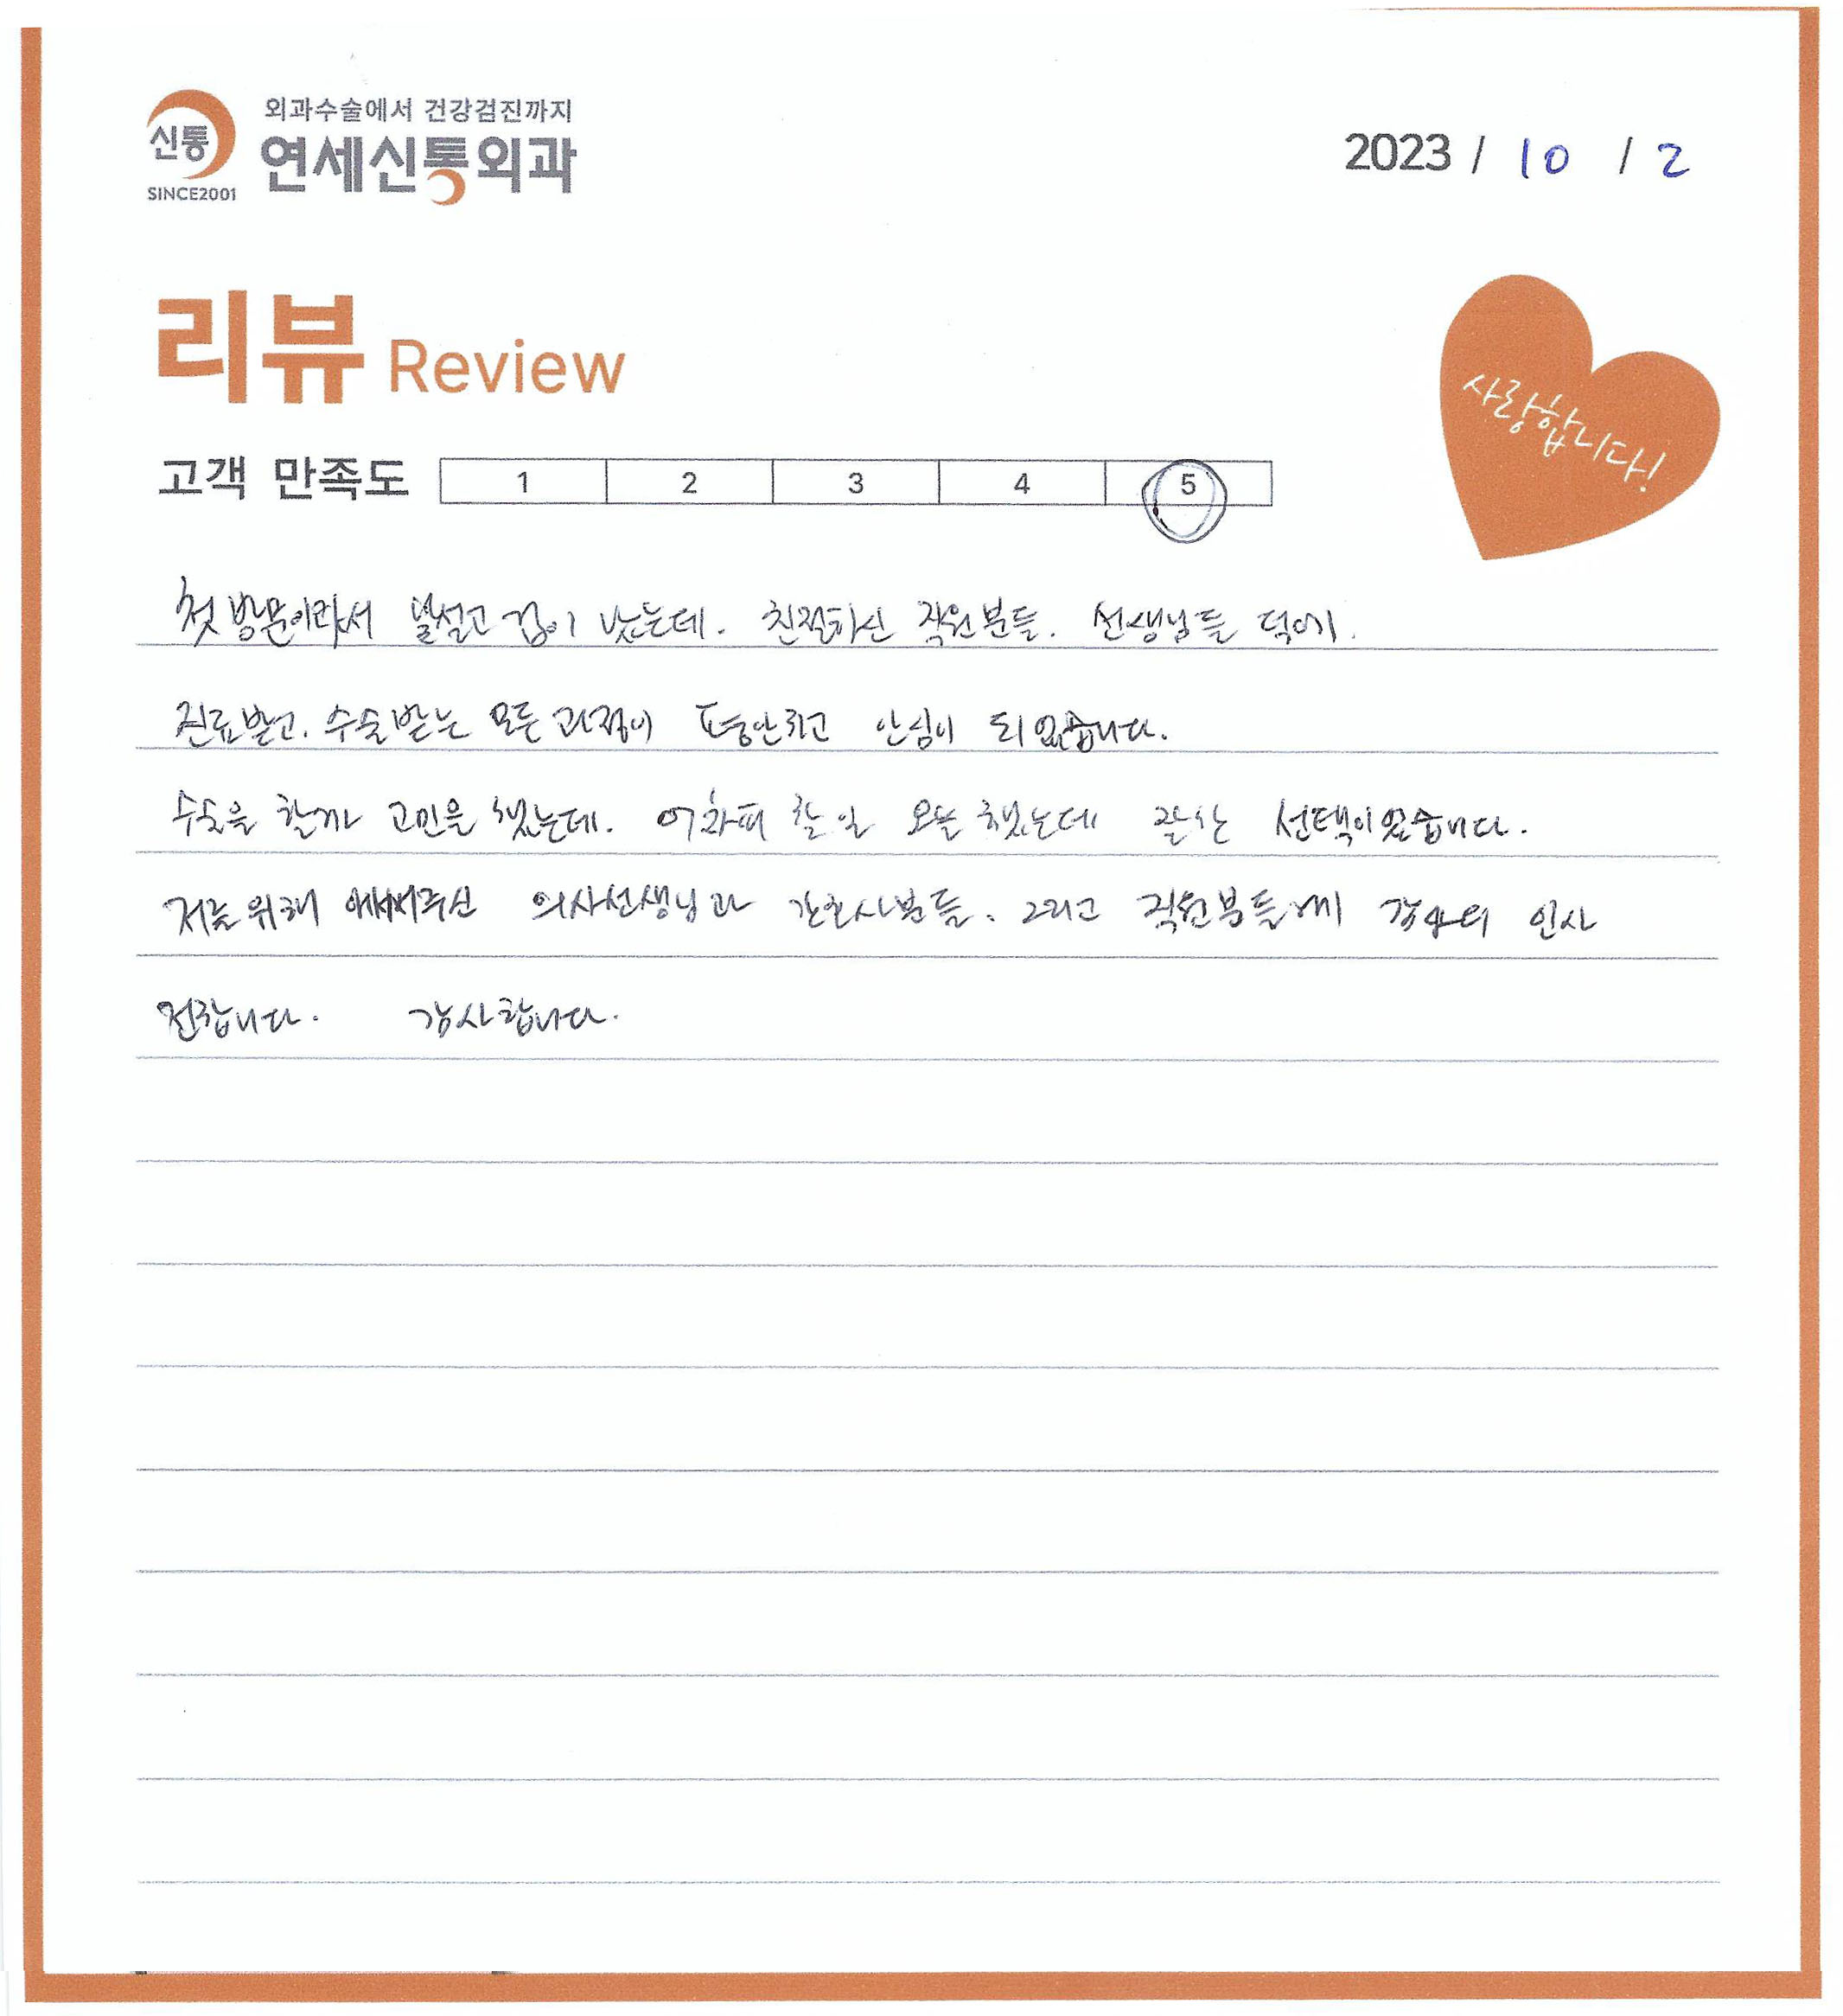 신통
SINCE2001
외과수술에서 건강검진까지
연세신통외과
2023 / 10 / 2
리뷰 Review
사랑합니다!
고객 만족도 1 2 3 4 5
첫 방문이라서 낯설고 겁이 났는데. 친절하신 직원분들. 선생님들 덕에.
진료받고. 수술받는 모든 과정이 평안하고 안심이 되었습니다.
수술을 할까 고민을 했는데. 어차피 할 일 오늘 했는데 잘한 선택이었습니다.
저를 위해 애써주신 의사선생님과 간호사분들. 그리고 직원분들께 감사의 인사
전합니다. 감사합니다.